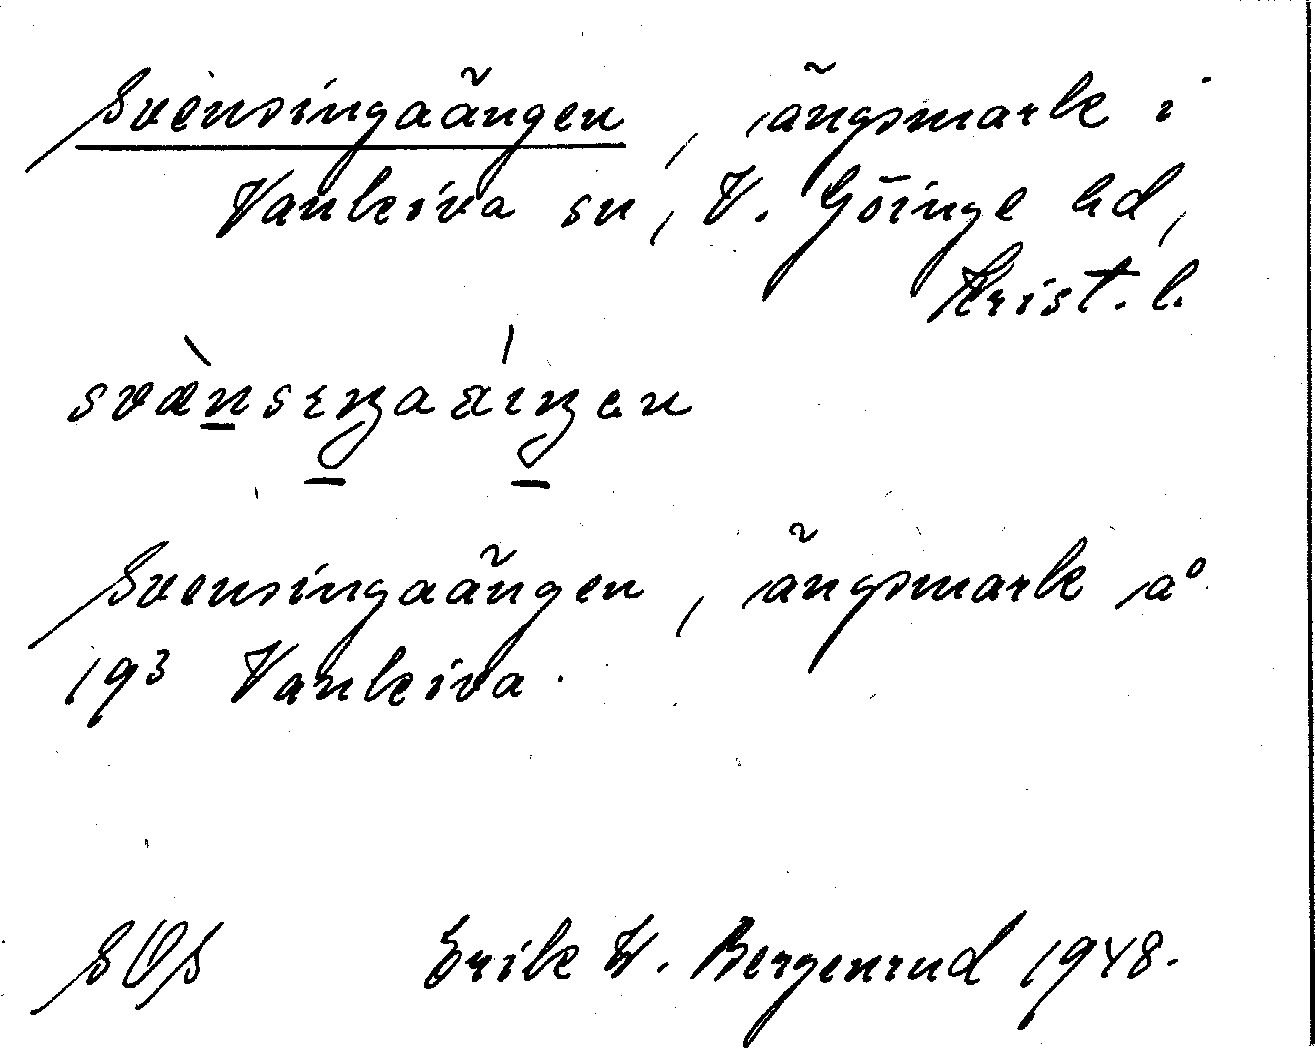 Svensingaängen, ängsmark i
Vankiva sn, V. Göinge hd,
Krist. l.
Svensingaängen, ängsmark å
19³ Vankiva.
SOS Erik W. Bergenrud 1948.